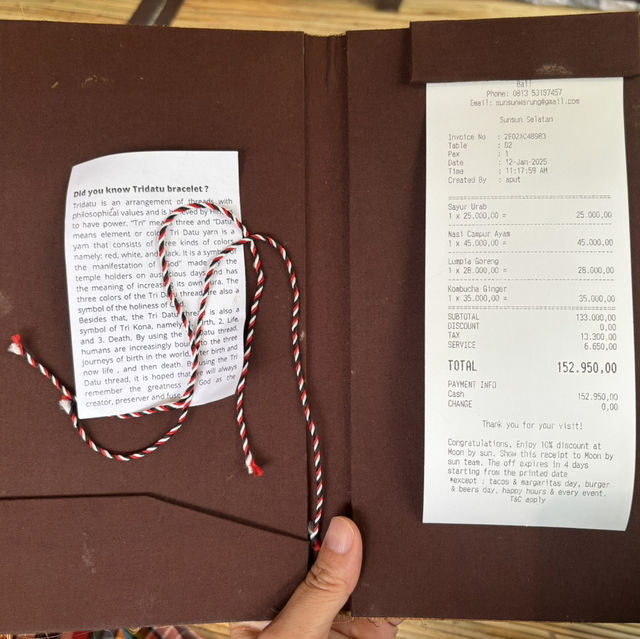 Did you know Tridatu bracelet ?
Tridatu is an arrangement of threads with
philosophical values and is believed by
to have power. "Tri" means three and "Datu"
means element or color. Tri Datu yarn is a
yarn that consists of three kinds of colors
namely: red, white, and black. It is a symbol of
the manifestation of God" made by the
temple holders on auspicious days and has
the meaning of increasing its own aura. The
three colors of the Tri Datu thread are also a
symbol of the holiness of God.
Besides that, the Tri Datu thread is also a
symbol of Tri Kona, namely 1. Birth, 2. Life
and 3. Death. By using the Tri Datu thread,
humans are increasingly bound to the three
journeys of birth in the world, after birth and
now life , and then death. By using the Tri
Datu thread, it is hoped that we will always
remember the greatness of God as the
creator, preserver and fuse
Bali
Phone: 0813 53197457
Email: sunsunwarung@gmail.com
Sunsun Selatan
Invoice No : 2E02AC48983
Table : D2
Pax : 1
Date : 12-Jan-2025
Time : 11:17:59 AM
Created By : aput
Sayur Urab
1 x 25.000,00 = 25.000,00
Nasi Campur Ayam
1 x 45.000,00 = 45.000,00
Lumpia Goreng
1 x 28.000,00 = 28.000,00
Kombucha Ginger
1 x 35.000,00 = 35.000,00
SUBTOTAL 133.000,00
DISCOUNT 0,00
TAX 13.300,00
SERVICE 6.650,00
TOTAL 152.950,00
PAYMENT INFO
Cash 152.950,00
CHANGE 0,00
Thank you for your visit!
Congratulations, Enjoy 10% discount at
Moon by sun. Show this receipt to Moon by
sun team. The off expires in 4 days
starting from the printed date
*except : tacos & margaritas day, burger
& beers day, happy hours & every event.
T&C apply